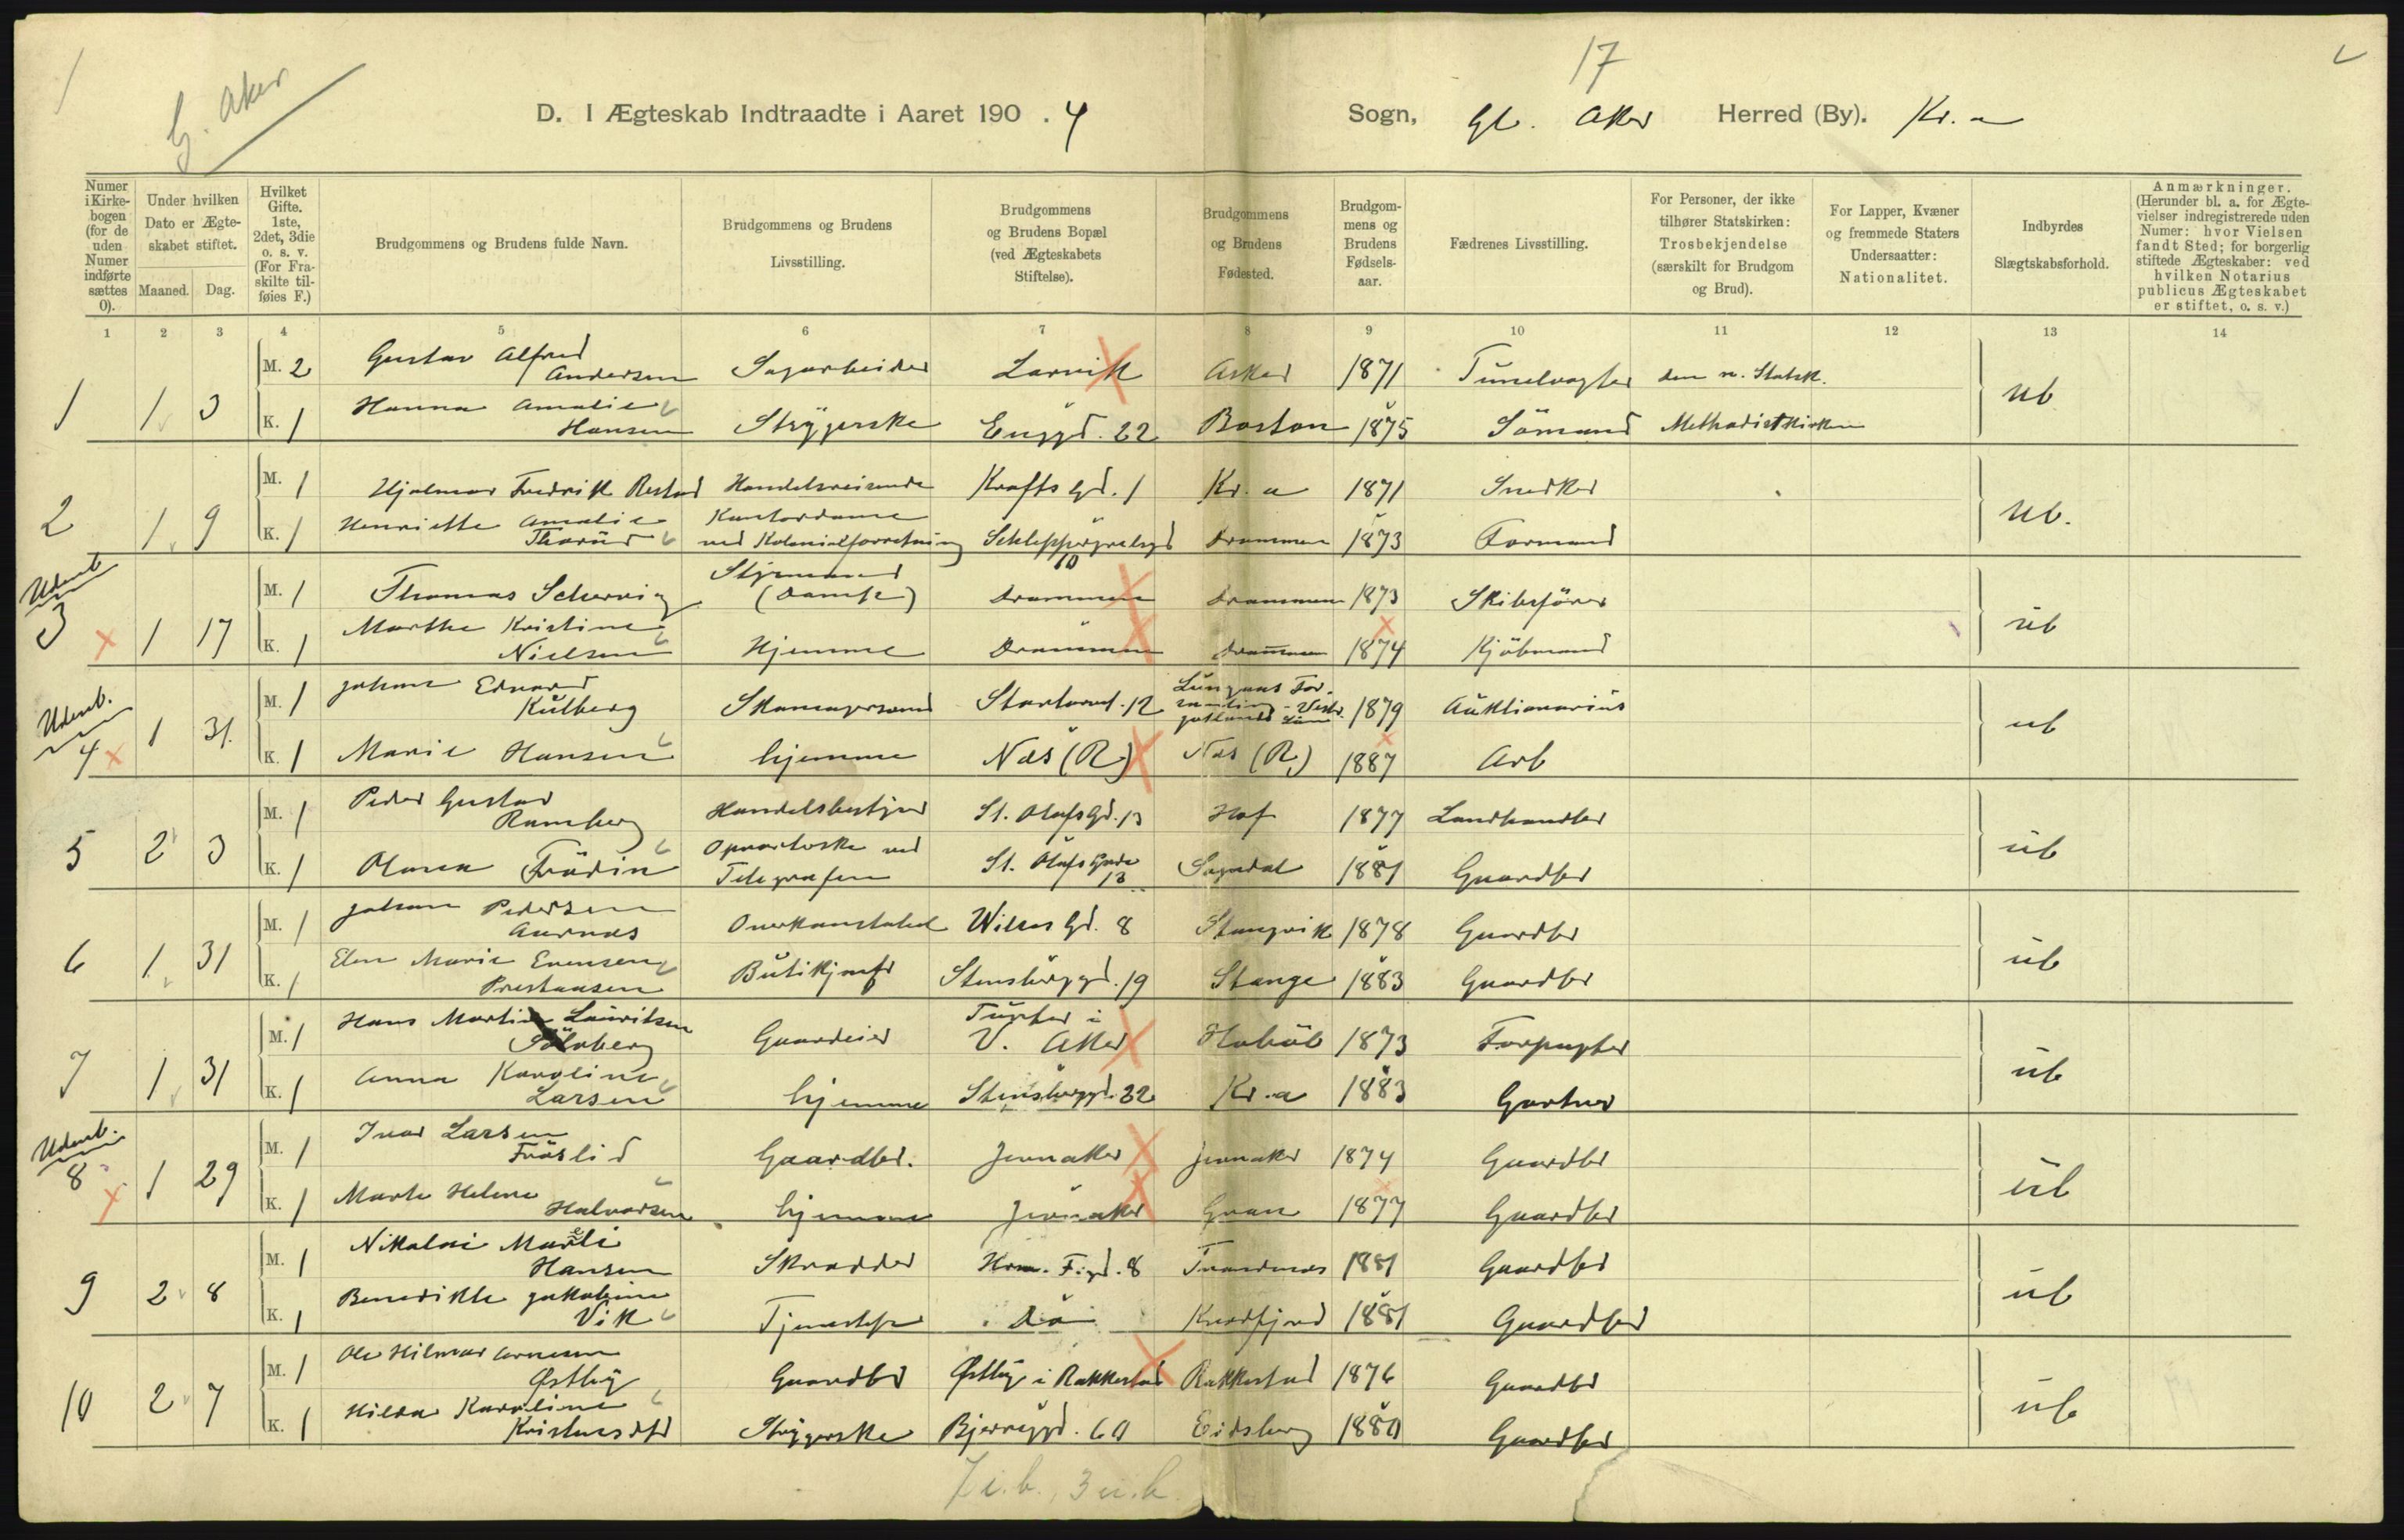 1
G. Aker
17
D. I Ægteskab Indtraadte i Aaret 190 . 4
Sogn, Gl. Aker Herred (By). Kr. a
Numer i Kirke-bogen (for de uden Numer indførte sættes 0).
Under hvilken Dato er Ægte-skabet stiftet.
Maaned. Dag.
Hvilket Gifte. 1ste, 2det, 3die o. s. v. (For Fra-skilte til-føies F.)
Brudgommens og Brudens fulde Navn.
Brudgommens og Brudens Livsstilling.
Brudgommens og Brudens Bopæl (ved Ægteskabets Stiftelse).
Brudgommens og Brudens Fødested.
Brudgom-mens og Brudens Fødsels-aar.
Fædrenes Livsstilling.
For Personer, der ikke tilhører Statskirken: Trosbekjendelse (særskilt for Brudgom og Brud).
For Lapper, Kvæner og fremmede Staters Undersaatter: Nationalitet.
Indbyrdes Slægtskabsforhold.
Anmærkninger. (Herunder bl. a. for Ægte-vielser indregistrerede uden Numer: hvor Vielsen fandt Sted; for borgerlig stiftede Ægteskaber: ved hvilken Notarius publicus Ægteskabet er stiftet, o. s. v.)
1 2 3 4 5 6 7 8 9 10 11 12 13 14
1 1 3 M. 2 Gustav Alfred Andersen Sagarbeider Larvik Asker 1871 Tunelvogter den n. Statsk. ub
K. 1 Hanna Amalie Hansen Strygerske Enggd. 22 Boston 1875 Sömand Methodistkirken
2 1 9 M. 1 Hjalmar Fredrik Restad Handelsreisende Krafts gd. 1 Kr. a 1871 Snedker ub.
K. 1 Henriette Amalie Thorüd Kontordame ved Kolonialforretning Schleppegrelsgd 10 Drammen 1873 Formand
Udenb.
3 1 17 M. 1 Thomas Scherving Styrmand (Damsk) Drammen Drammen 1873 Skibsförer ub
K. 1 Marthe Kristine Nielsen Hjemme Drammen Drammen 1874 Kjöbmand
Udenb.
4 1 31. M. 1 Johan Edvard Kulberg Skomagersvend Stortorvet. 12 1879 Auktionarius ub
K. 1 Marie Hansen hjemme Næs (R) Næs (R) 1887 Arb
5 2 3 M. 1 Peder Gustav Ramberg Handelsbestyrer St. Olafs Gd. 13 Hof 1877 Landhandler ub
K. 1 Frödin Opvarterske ved Telegrafen St. Olafs Gade 13 Sogndal 1881 Gaardbr
6 1 31 M. 1 Johan Pedersen Aurnes Overkonstabel Wilses Gd. 8 Stangvik 1878 Gaardbr ub
K. 1 Elen Marie Evensen Prestaasen Butikjomfr Stensberggd. 19 Stange 1883 Gaardbr
7 1 31 M. 1 Hans Martin Lauritsen Sölvberg Gaardeier V. Aker Haböl 1873 Forpagter ub
K. 1 Anna Karoline Larsen hjemme Stensberggd. 22 Kr. a 1883 Gartner
Udenb.
8 1 29 M. 1 Ivar Larsen Fröslid Gaardbr. Jevnaker Jevnaker 1874 Gaardbr ub
K. 1 Marte Helene Halvorsen hjemme Jevnaker Gran 1877 Gaardbr
9 2 8 M. 1 Nikolai Hansen Skrædder 8 1881 Gaardbr ub
K. 1 Benedikte Jakobine Vik Tjenestepe Do Kvædfjord 1881 Gaardbr
10 2 7 M. 1 Ole Hilmar Arnesen Østby Gaardbr Østby i Rakkestad Rakkestad 1876 Gaardbr ub
K. 1 Hilda Karoline Kristensdtr Strygerske Bjerregd. 60 Eidsberg 1880 Gaardbr
7 i.b., 3 u.b.